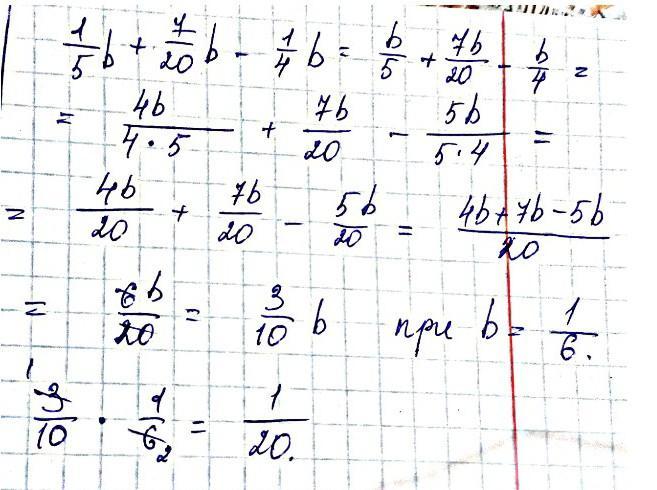 1/5 b + 7/20 b - 1/4 b = b/5 + 7b/20 - b/4 =
= 4b/(4·5) + 7b/20 - 5b/(5·4) =
= 4b/20 + 7b/20 - 5b/20 = (4b+7b-5b)/20
= 6b/20 = 3/10 b при b = 1/6.
1
3/10 · 1/6 2 = 1/20.